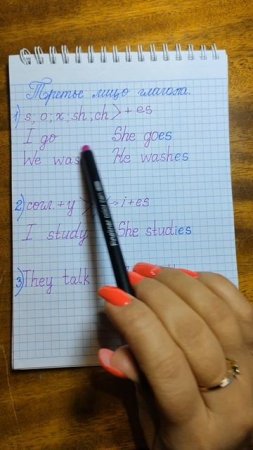 Третье лицо глагола.
1) s, o, x, sh, ch > + es
I go She goes
We wash He washes
2) согл. + y > i + es
I study She studies
3) They talk